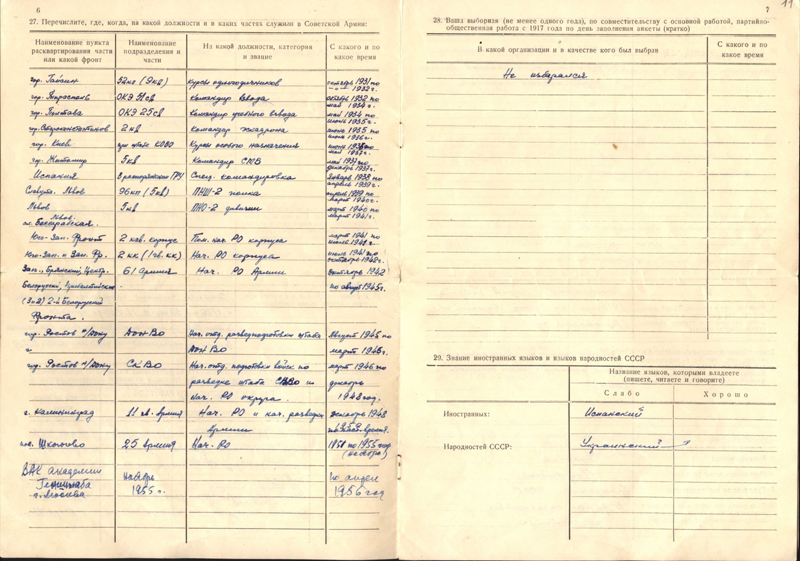 6
27. Перечислите, где, когда, на какой должности и в каких частях служили в Советской Армии:
Наименование пункта расквартирования части или какой фронт
Наименование подразделения и части
На какой должности, категория и звание
С какого и по какое время
гор. Гайсин 52кп (9кд) Курсы одногодичников октябрь 1931 1932 г.
гор. Тирасполь ОКЭ 51сд Командир взвода октябрь 1932 по май 1934 г.
гор. Полтава ОКЭ 25сд Командир учебного взвода май 1934 по июнь 1935 г.
гор. Староконстантинов 2кд Командир эскадрона июнь 1935 по июнь 1936 г.
гор. Киев при штабе КОВО Курсы особого назначения
гор. Житомир 5кд Командир май 1937 по декабрь 1937 г.
Испания В распоряжении ГРУ Спец. командировка Январь 1938 апрель 1939 г.
Славута. Львов 96кп (5кд) ПНШ-2 полка апрель 1939 по март 1940 г.
Львов 5кд ПНО-2 дивизии март 1940 по март 1941 г.
Львов.
Бессарабская.
Юго-Зап. Фронт 2 кав. корпус Пом. нач РО корпуса март 1941 июль 1941 г.
Юго-Зап. и Зап. Фр. 2 кк (1 гв. кк) Нач. РО корпуса июль 1941 по октябрь 1942 г.
Зап., Брянский, Центр. 61 Армия Нач. РО Армии октябрь 1942
Белорусский, Прибалтийский по август 1945 г.
2-й Белорусский
Фронта.
гор. Ростов н/Дону ДонВО Нач. отд. разведподготовки штаба Август 1945 по
ДонВО март 1946 г.
гор. Ростов н/Дону СкВО Нач. отд. подготовки войск по март 1946 по
разведке штаба СКВО и декабрь
Нач. РО округа. 1948 год.
г. Калининград 11 гв. армия Нач. РО и нач. разведки декабрь 1948
Армии время.
пос. Шкотово 25 Армия Нач. РО 1951 по 1955 год
(ноябрь)
ВАК академии ноябрь по апрель
Генштаба 1955 г. 1956 год
г. Москва
11
7
28. Ваша выборная (не менее одного года), по совместительству с основной работой, партийно-
общественная работа с 1917 года по день заполнения анкеты (кратко)
В какой организации и в качестве кого был выбран
С какого и по какое время
Не избирался
29. Знание иностранных языков и языков народностей СССР
Название языков, которыми владеете
(пишете, читаете и говорите)
Слабо Хорошо
Иностранных: Испанский
Народностей СССР: Украинский